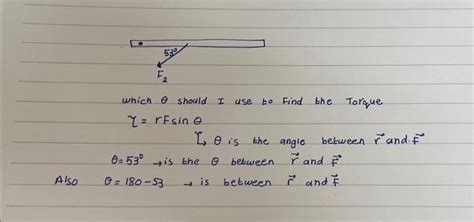 53°
F₂
which θ should I use to find the Torque
τ = rFsin θ
↳ θ is the angle between r⃗ and F⃗
θ = 53° → is the θ between r⃗ and F⃗
Also θ = 180 - 53 → is between r⃗ and F⃗